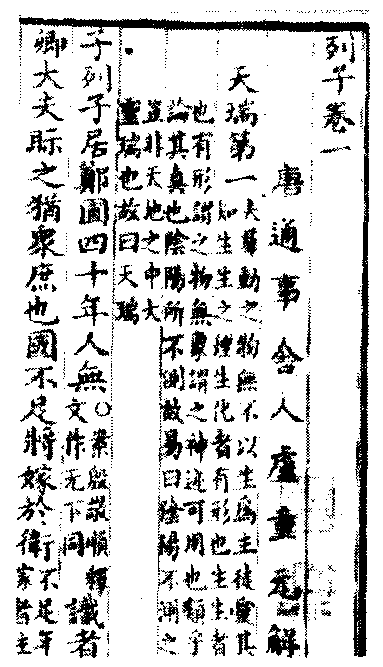 列子卷一
唐通事舍人盧重元解
天瑞第一夫羣動之物無不以生爲主徒愛其
知生生之理生化者有形也生生者
也有形謂之物無象謂之神迹可用也類乎
論其真也陰陽所不測故易曰陰陽不測之
豈非天地之中大
靈瑞也故曰天瑞
子列子居鄭圃四十年人無○案殷敬順釋文作无下同識者
卿大夫眎之猶衆庶也國不足將嫁於衛